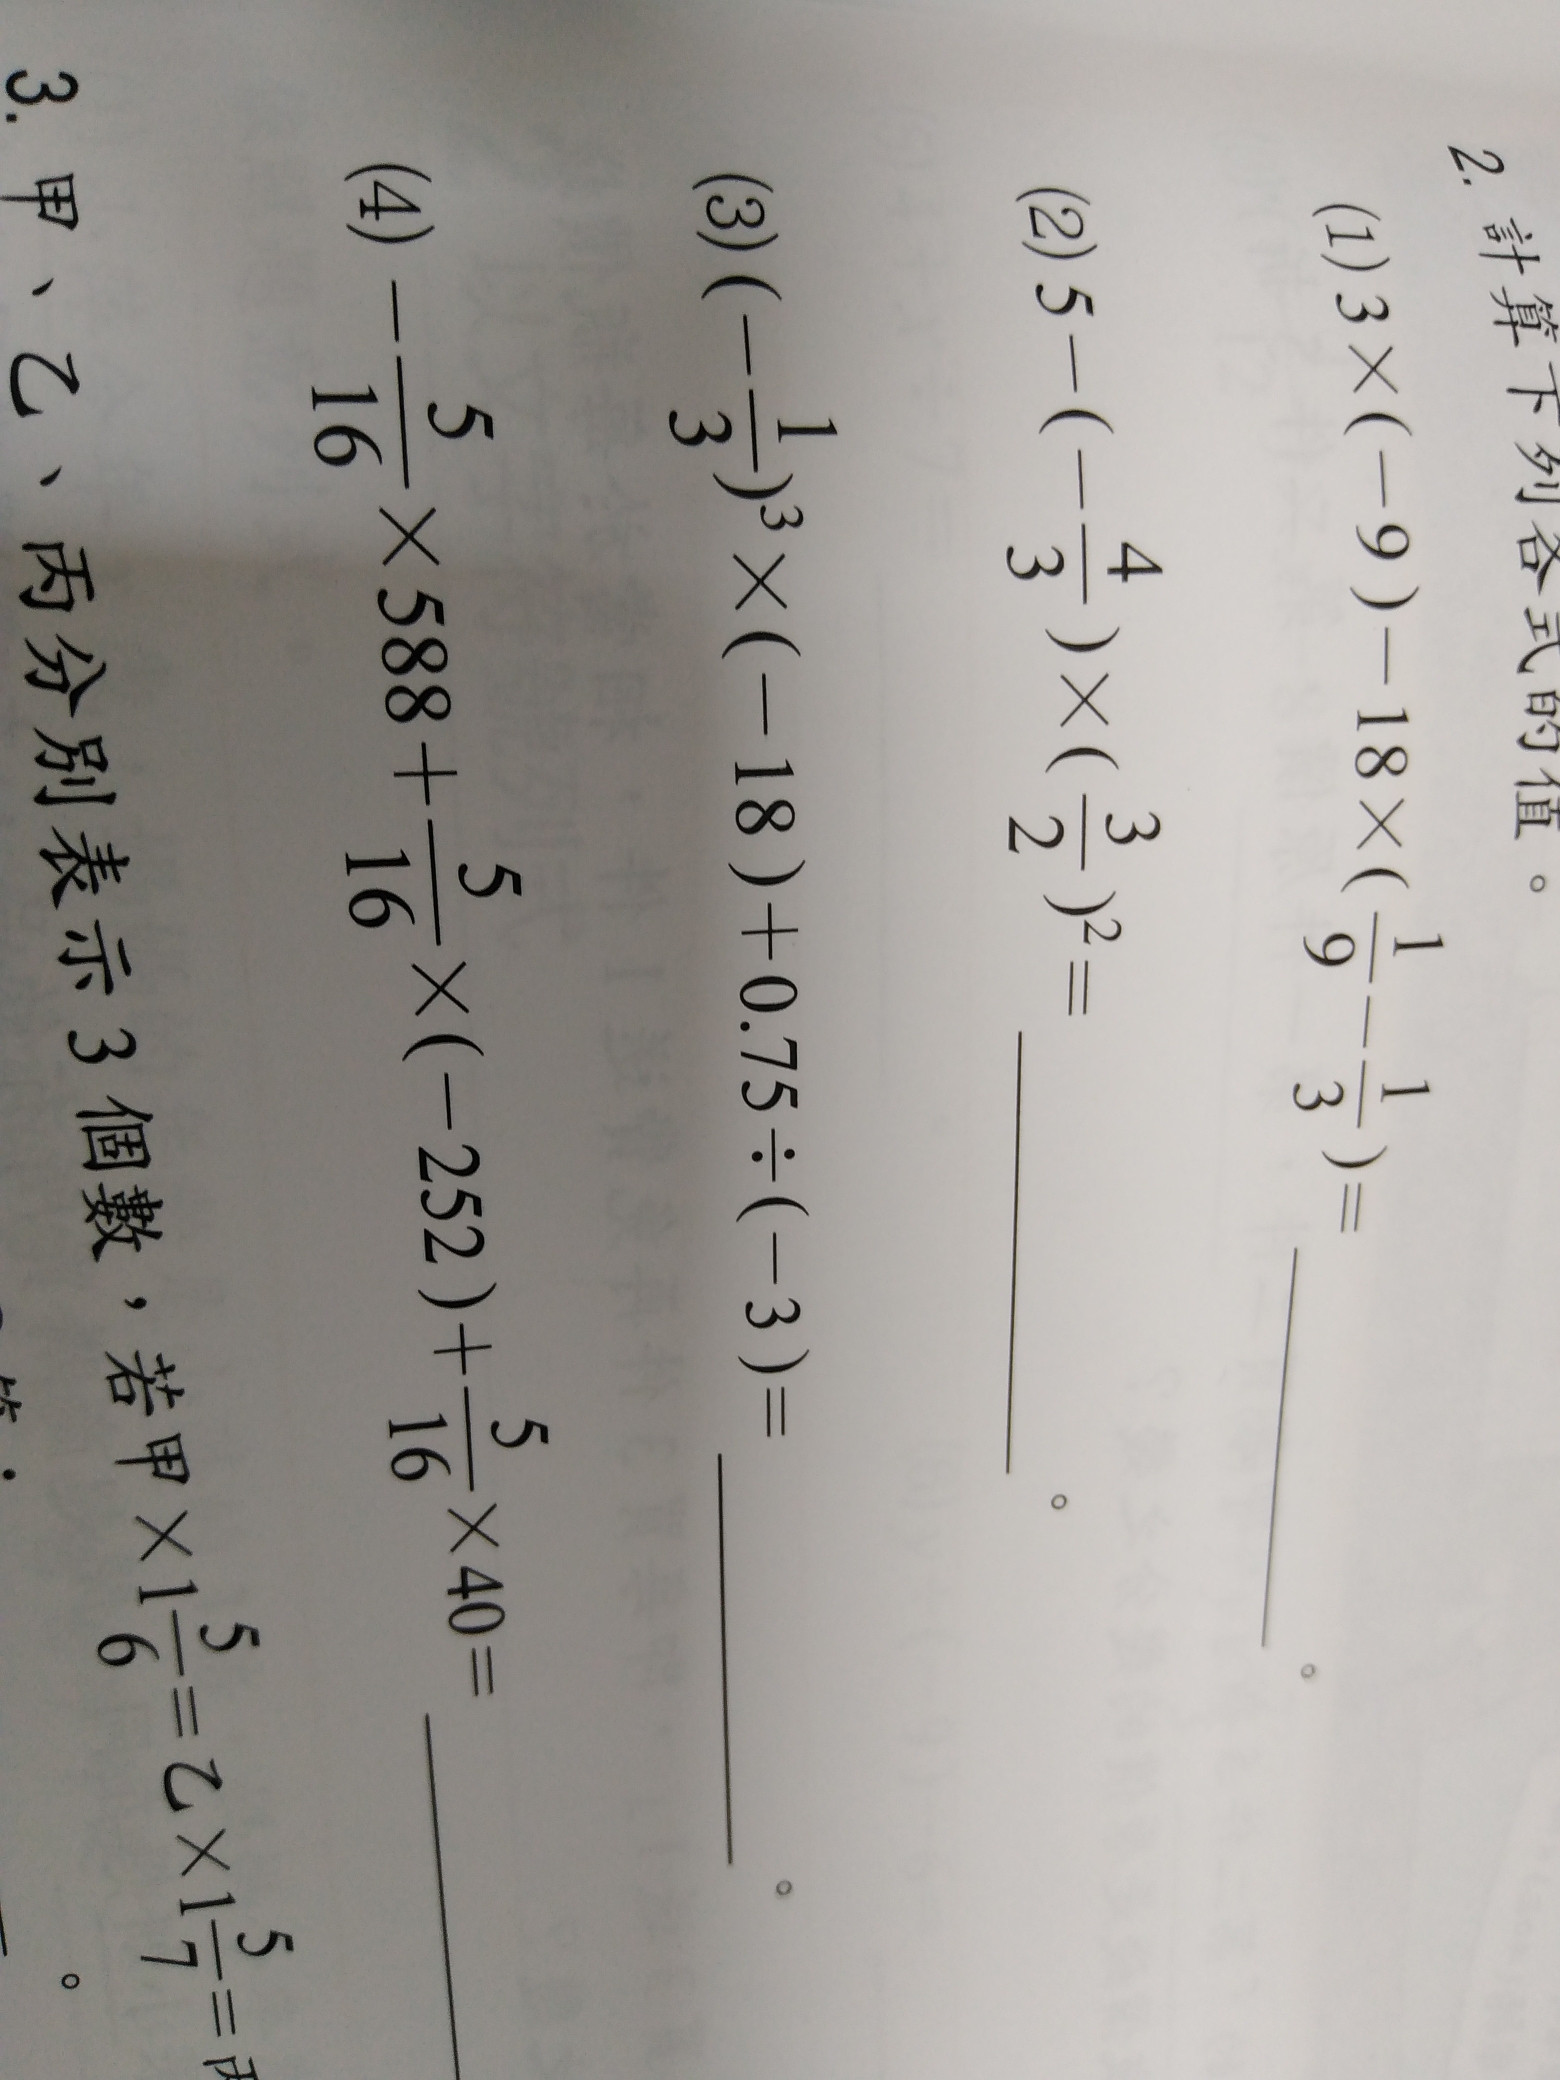 2. 計算下列各式的值。
(1) 3×(－9)－18×(1/9－1/3)=________。
(2) 5－(－4/3)×(3/2)²=________。
(3) (－1/3)³×(－18)+0.75÷(－3)=________。
(4) －5/16×588+5/16×(－252)+5/16×40=________
3. 甲、乙、丙分別表示3個數，若甲×1 5/6=乙×1 5/7=丙